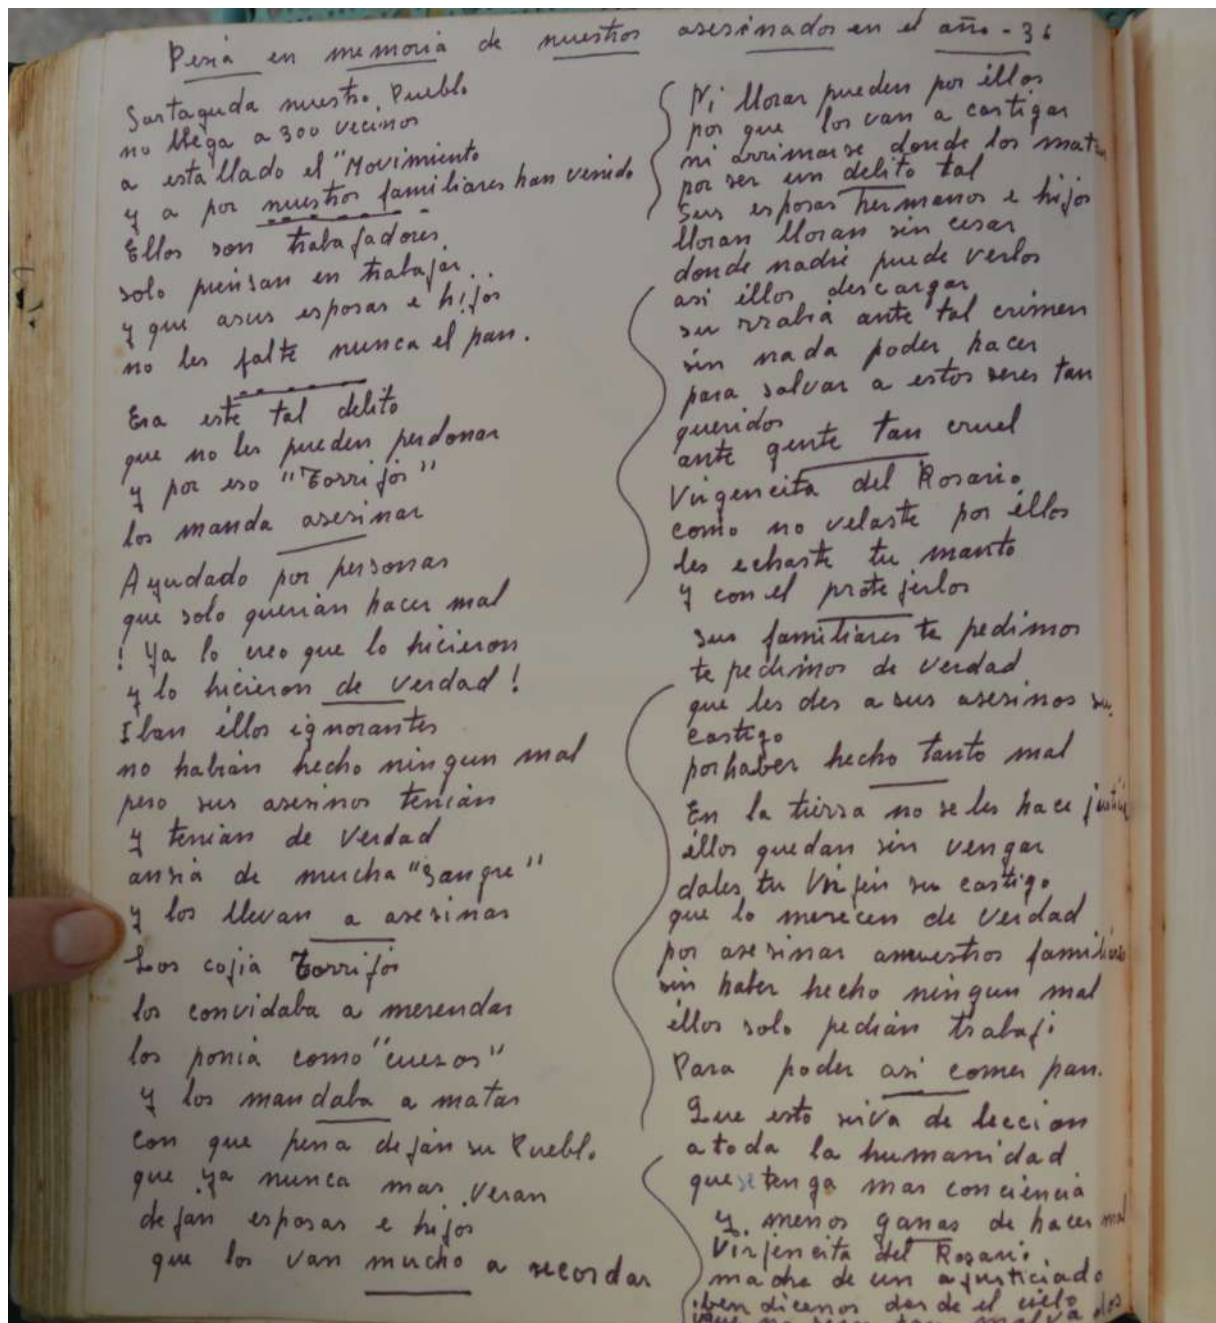 Pesia en memoria de nuestros asesinados en el año - 36
Sartaguda nuestro Pueblo
no llega a 300 vecinos
a esta llado el "Movimiento
y a por nuestros familiares han venido
Ellos son trabajadores
solo piensan en trabajar..
y que asus esposas e hijos
no les falte nunca el pan.
Era este tal delito
que no les pueden perdonar
y por eso "Torrijos"
los manda asesinar
Ayudado por personas
que solo querian hacer mal
! Ya lo creo que lo hicieron
y lo hicieron de verdad !
Iban éllos ignorantes
no habián hecho ningun mal
pero sus asesinos tenián
y tenian de Verdad
ansiá de mucha "Sangre"
y los llevan a asesinar
Los cojia Torrijos
los convidaba a merendar
los poniá como "cuezos"
y los mandaba a matar
Con que pena dejan su Pueblo
que ya nunca mas veran
dejan esposas e hijos
que los van mucho a recordar
Ni llorar pueden por éllos
por que los van a castigar
ni arrimarse donde los matan
por ser un delito tal
Sus esposas hermanos e hijos
lloran lloran sin cesar
donde nadie puede verlos
asi éllos descargar
su rrabiá ante tal crimen
sin nada poder hacer
para salvar a estos seres tan
queridos
ante gente tan cruel
Virgencita del Rosario
como no velaste por éllos
les echaste tu manto
y con el protejerlos
sus familiares te pedimos
te pedimos de verdad
que les des a sus asesinos su
castigo
porhaber hecho tanto mal
En la tierra no se les hace justicia
éllos quedan sin vengar
dales tu Virjen su castigo
que lo merecen de verdad
por asesinar anuestros familiares
sin haber hecho ningun mal
éllos solo pedián trabajo
Para poder asi comer pan.
Que esto sirva de leccion
atoda la humanidad
que se tenga mas conciencia
y menos ganas de hacer mal
Virjencita del Rosario
madre de un ajusticiado
bendicenos desde el cielo